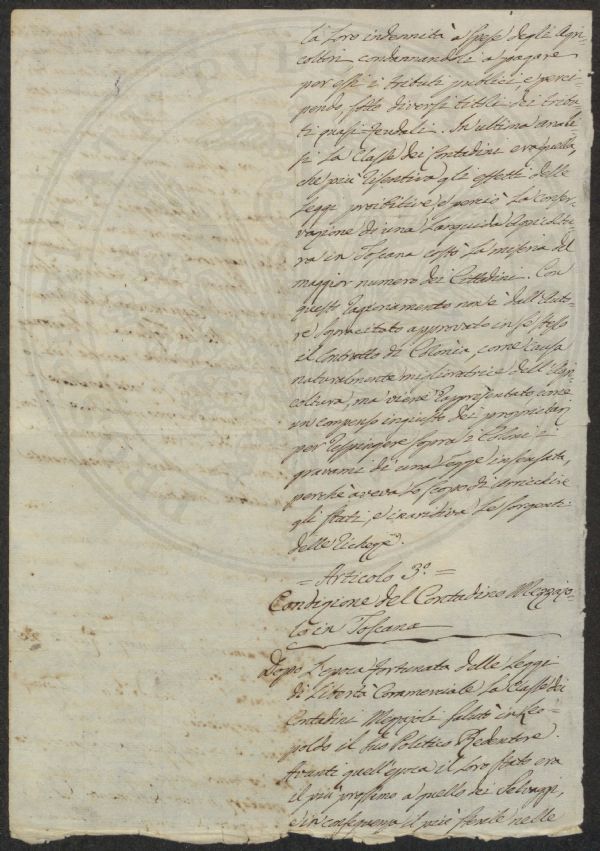 la loro indennità a spese degli Agri-
coltori condannandoli a pagare
per essi i tributi publici, e perce-
pendo sotto diversi titoli dei tribu-
ti quasi feudali. In ultima anali-
si la Classe dei Contadini era quella
che più risentiva gli effetti delle
Leggi proibitive, e perciò la conser-
vazione di una languida Agricoltu-
ra in Toscana costò la miseria del
maggior numero dei Cittadini. Con
questo ragionamento non è dall'Auto-
re sopracitato approvato in se stesso
il Contratto di Colonìa, come causa
naturalmente miglioratrice dell'Agri-
coltura, ma viene rappresentato come
un compenso ingiusto dei proprietarj
per respingere sopra i Coloni i
gravami di una legge insensata,
perchè aveva lo scopo di arricchire
gli stati, e inaridiva le sorgenti
delle ricchezze.
= Articolo 3.° =
Condizione del Contadino Mezzajo-
lo in Toscana
Dopo l'epoca fortunata delle Leggi
di Libertà Commerciale la Classe dei
Contadini Mezzajoli salutò in Leo-
poldo il suo Politico Redentore.
Avanti quell'epoca il loro stato era
il più prossimo a quello dei Selvaggi,
e in conseguenza il più sterile nelle